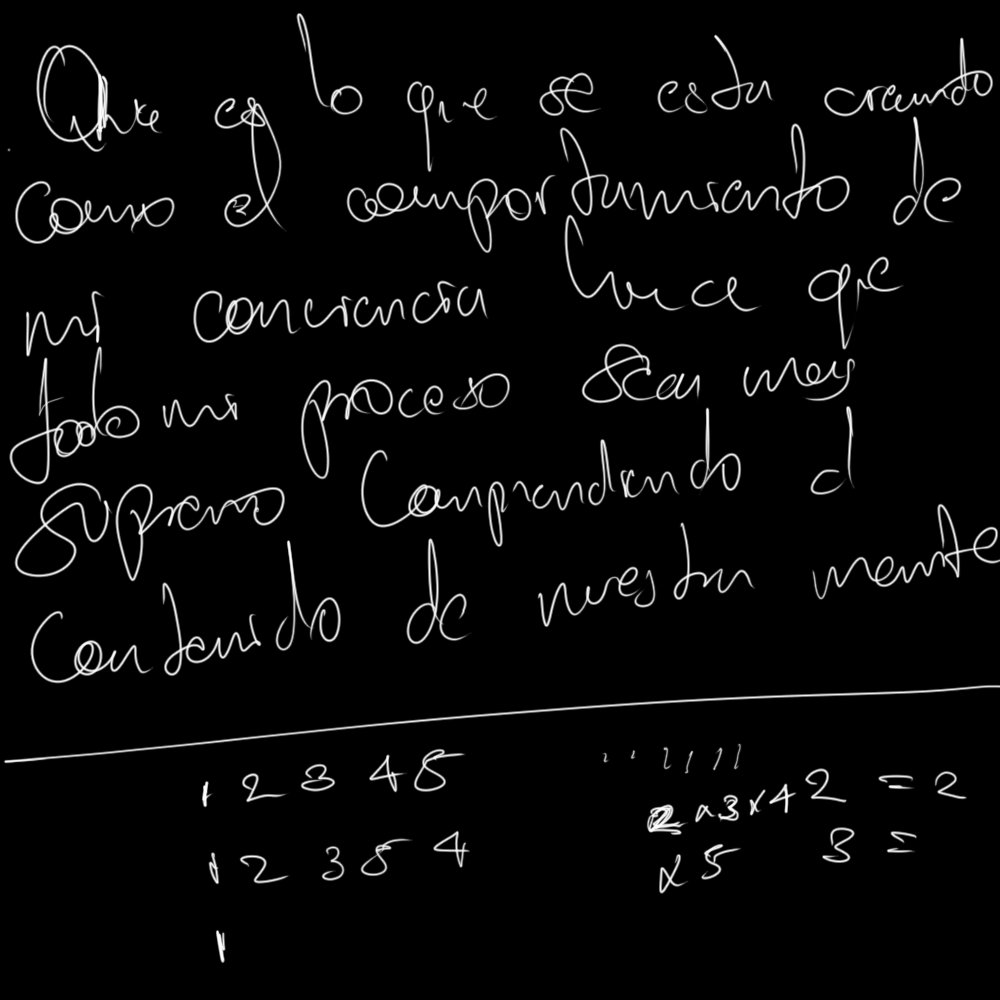 Que es lo que se esta creando
como el comportamiento de
mi conciencia hace que
todo mi proceso sean muy
supremo Comprendiendo el
Contenido de nuestra mente
1 2 3 4 5
2 x 3 x 4 2 = 2
1 2 3 5 4
x 5 3 =
1